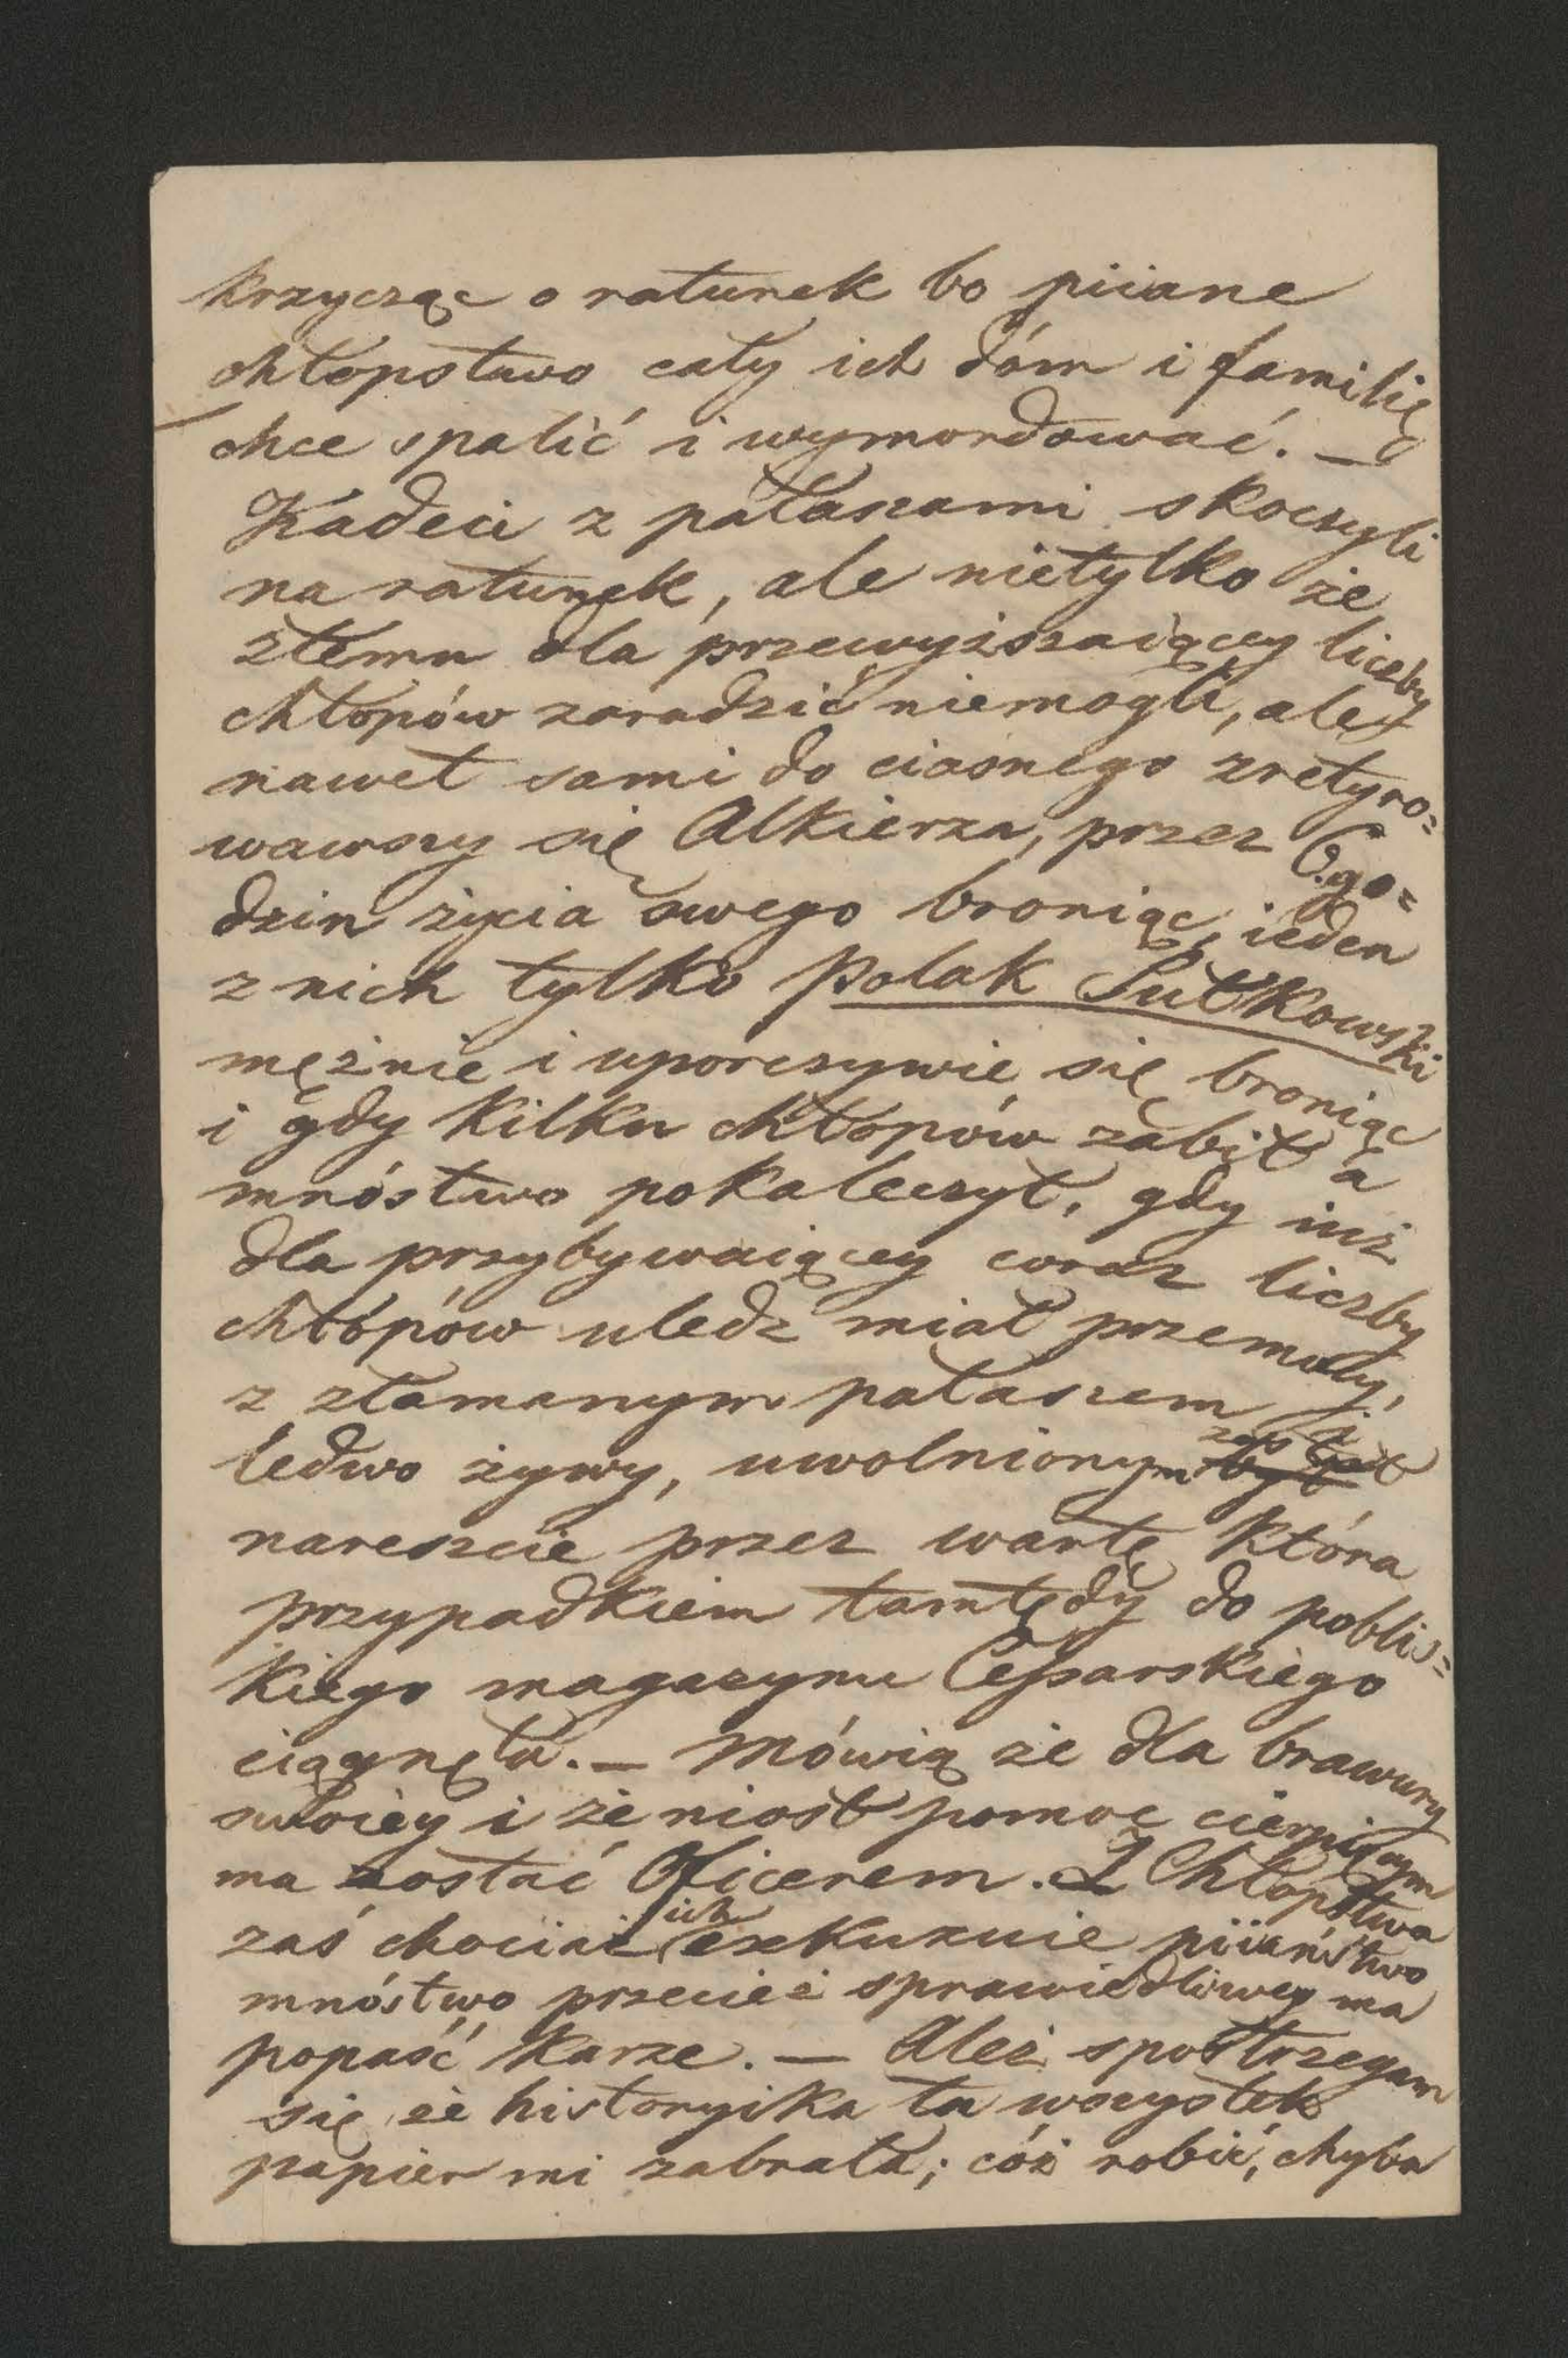 krzycząc o ratunek bo piiane
chłopstwo cały ich dóm i familię
chce spalić i wymordować. —
Kadeci z pałaszami skoczyli
na ratunek, ale nietylko że
złemu dla przewyższaiącey liczby
chłopów zaradzić niemogli, ale
nawet sami do ciasnego zretyro=
wawszy się Alkierza, przez 6. go=
dzin życia swego broniąc, ieden
z nich tylko Polak Sułkowski
mężnie i uporczywie się broniąc
i gdy kilku chłopów zabił a
mnóstwo pokaleczył, gdy iuż
dla przybywaiącey coraz liczby
chłópów uledz miał przemocy,
z złamanym pałaszem i
ledwo żywy, uwolnionym został
nareszcie przez wartę która
przypadkiem tamtędy do poblis=
kiego magazynu Cessarskiego
ciągnęła. — Mówią że dla brawury
swoiey i że niosł pomoc cierpiącym
ma zostać Oficerem. Z Chłopstwa
zaś chociaż ich exkuzuie piiaństwo
mnóstwo przecież sprawiedliwey ma
popaść karze. — Ależ spostrzegam
się że historyika ta wszystek
papier mi zabrała; cóż robić, chyba